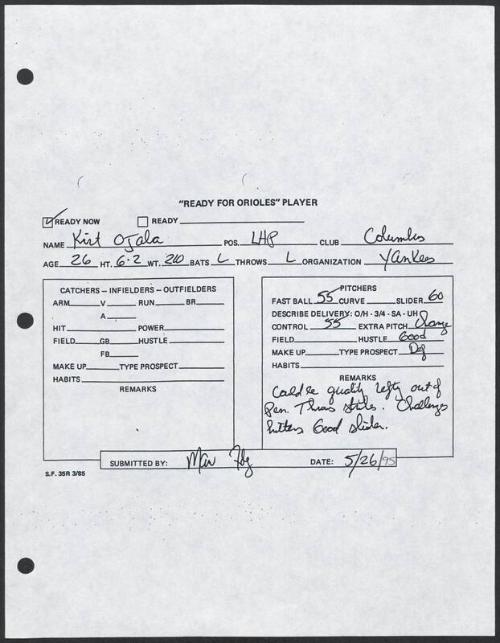 "READY FOR ORIOLES" PLAYER
READY NOW READY
NAME Kirt Ojala POS. LHP CLUB Columbus
AGE 26 HT. 6-2 WT. 210 BATS L THROWS L ORGANIZATION Yankees
CATCHERS – INFIELDERS – OUTFIELDERS
ARM V RUN BR
A
HIT POWER
FIELD GB HUSTLE
FB
MAKE UP TYPE PROSPECT
HABITS
REMARKS
PITCHERS
FAST BALL 55 CURVE SLIDER 60
DESCRIBE DELIVERY: O/H - 3/4 - SA - UH
CONTROL 55 EXTRA PITCH Change
FIELD HUSTLE Good
MAKE UP TYPE PROSPECT Def
HABITS
REMARKS
Could be quality lefty out of
Pen. Throws strikes. Challenges
hitters Good slider.
SUBMITTED BY: DATE: 5/26/95
S.F. 35R 3/85